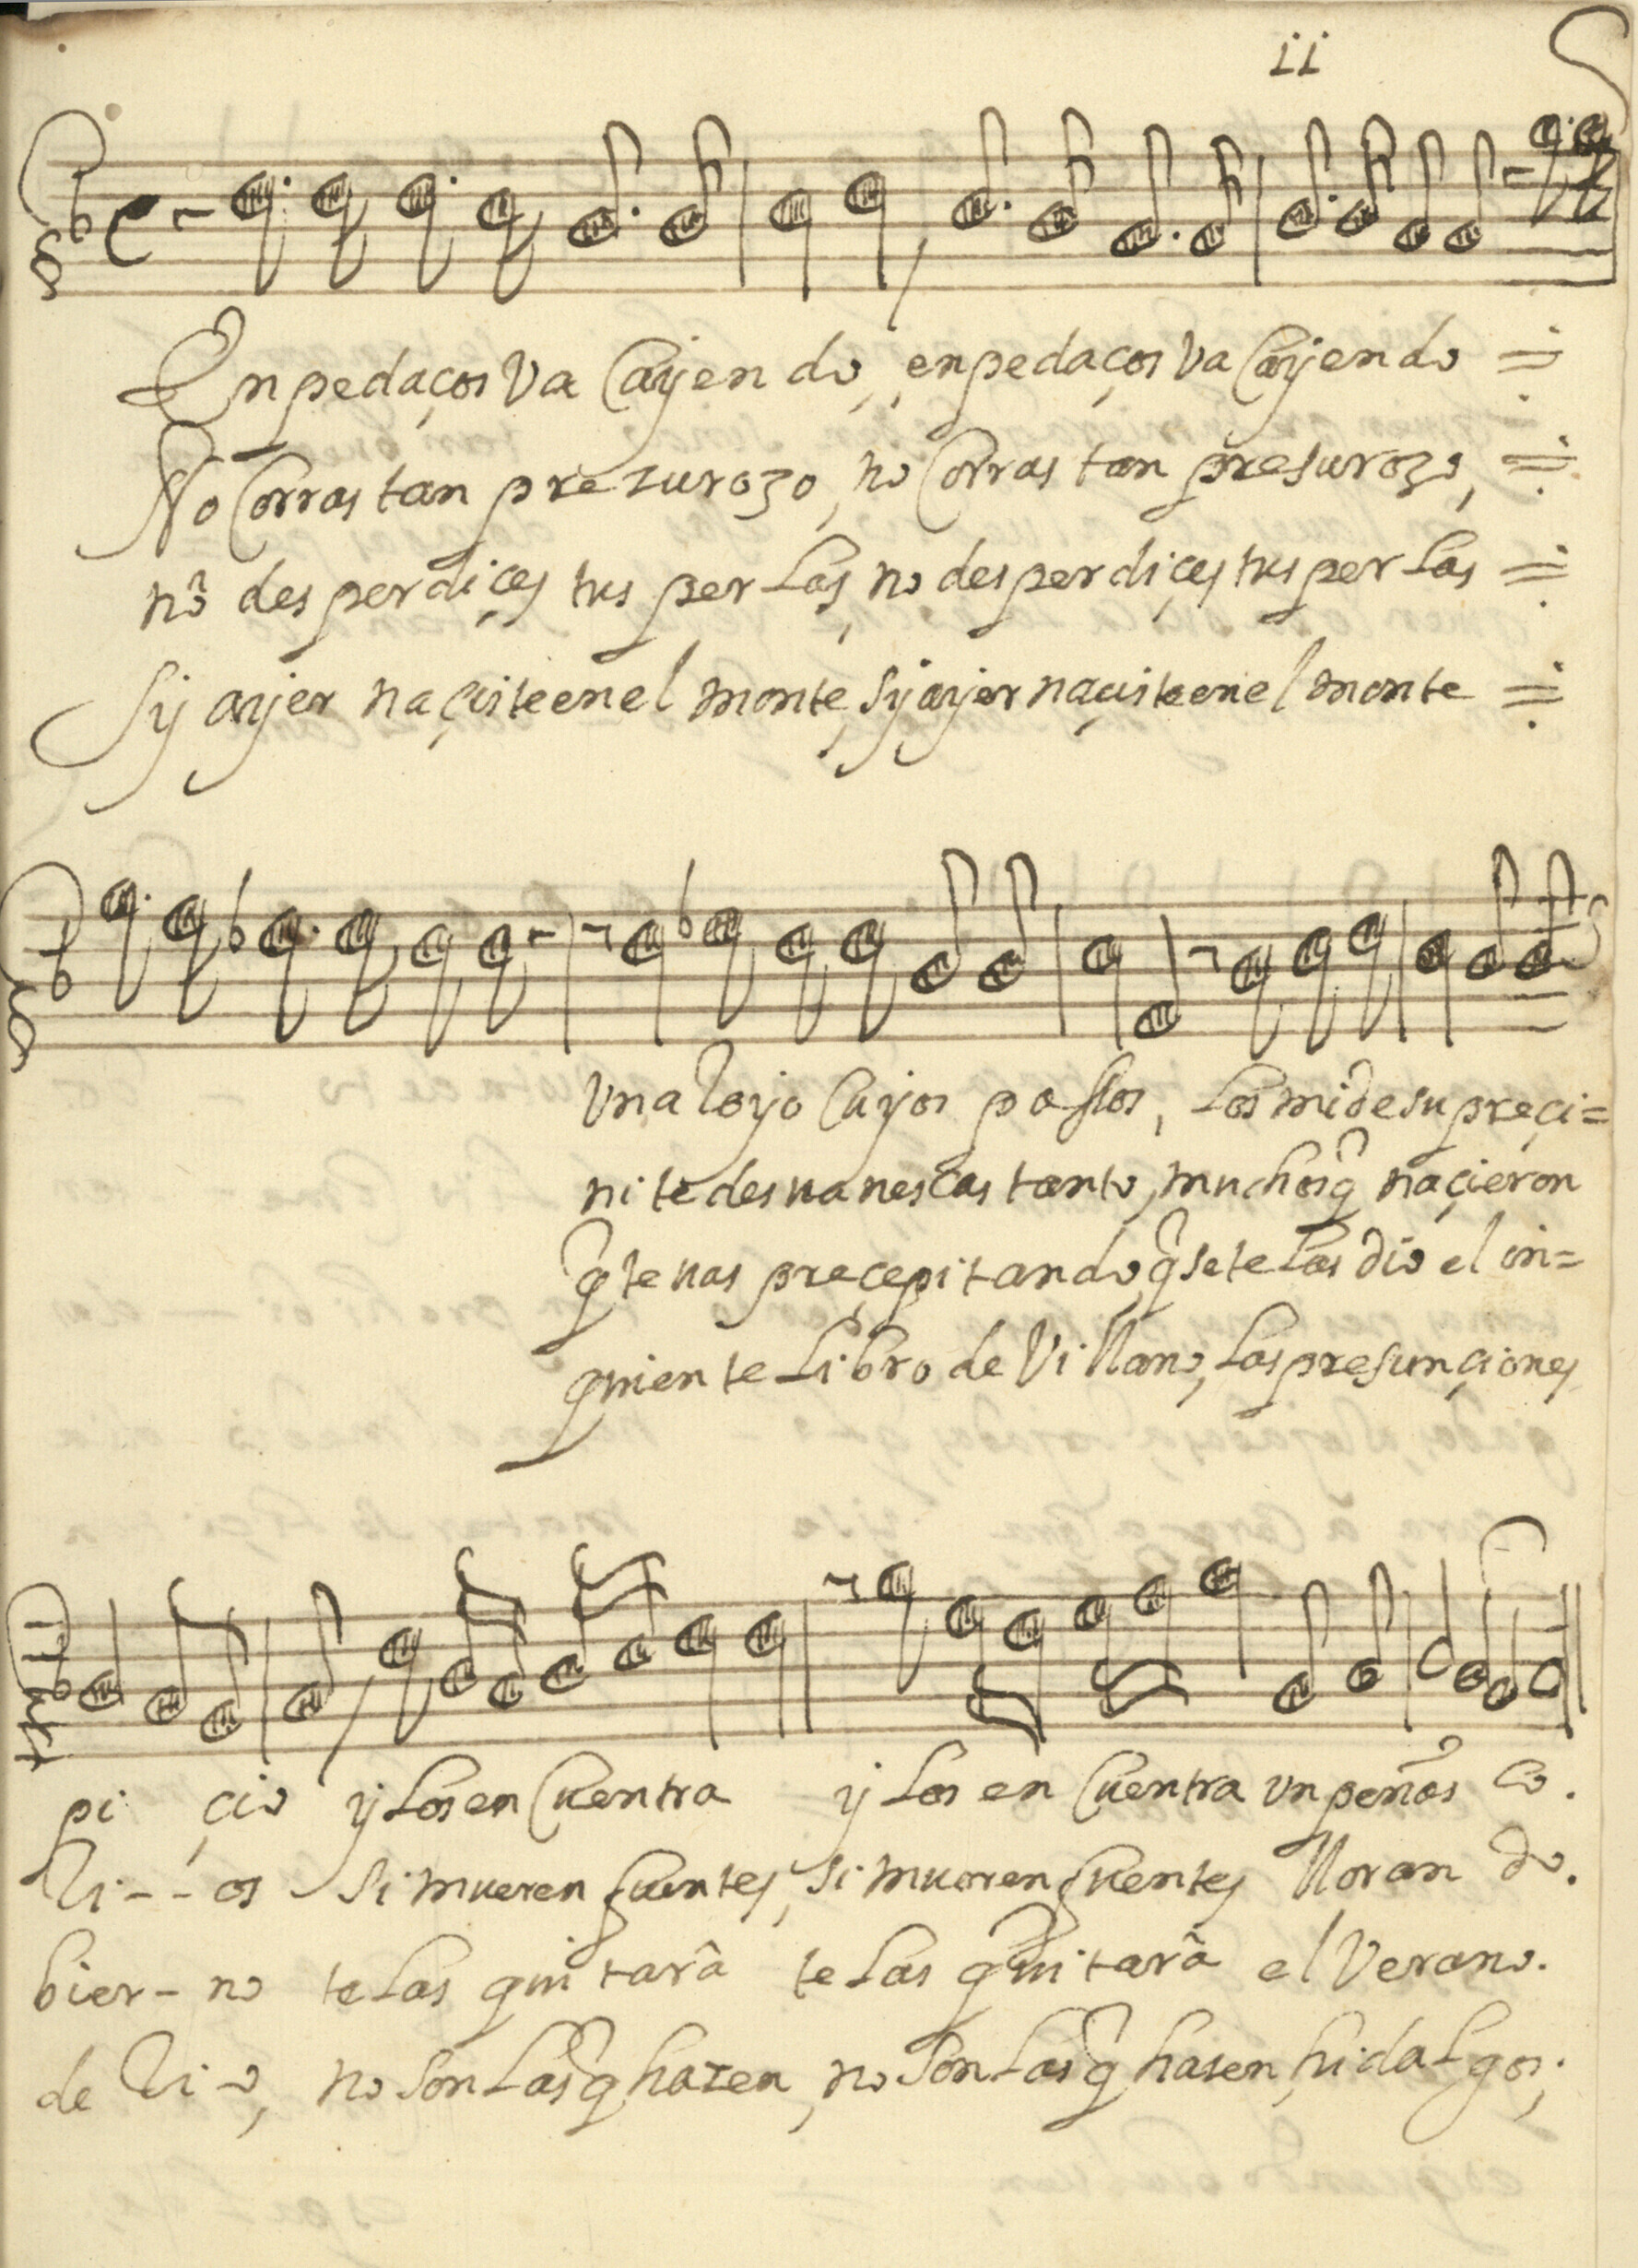 ii
Enpedaços va Cayendo, enpedaços va Cayendo
No Corras tan prezurozo, no Corras tan presurozo,
nõ desperdiçes tus perlas, no desperdiçes tus perlas
Sy ayer naçiste enel monte, sy ayer naçiste enel monte
Un aRoyo Cuyos passos, los mide su preçi=
ni te desvanescas tanto, muchos q̃ naçieron
q̃ te vas preçepitando, q̃ se te las dio el in=
quiente libro de Villano, las presunçiones
pi çio y los en Cuentra y los en Cuentra un peñas co.
Ri - - os si mueren fuentes, si mueren fuentes lloran do.
bier - no te las quitarâ te las quitarâ el Verano.
de Ri - o, no son las q̃ hazen, no son las q̃ hazen hidalgos;